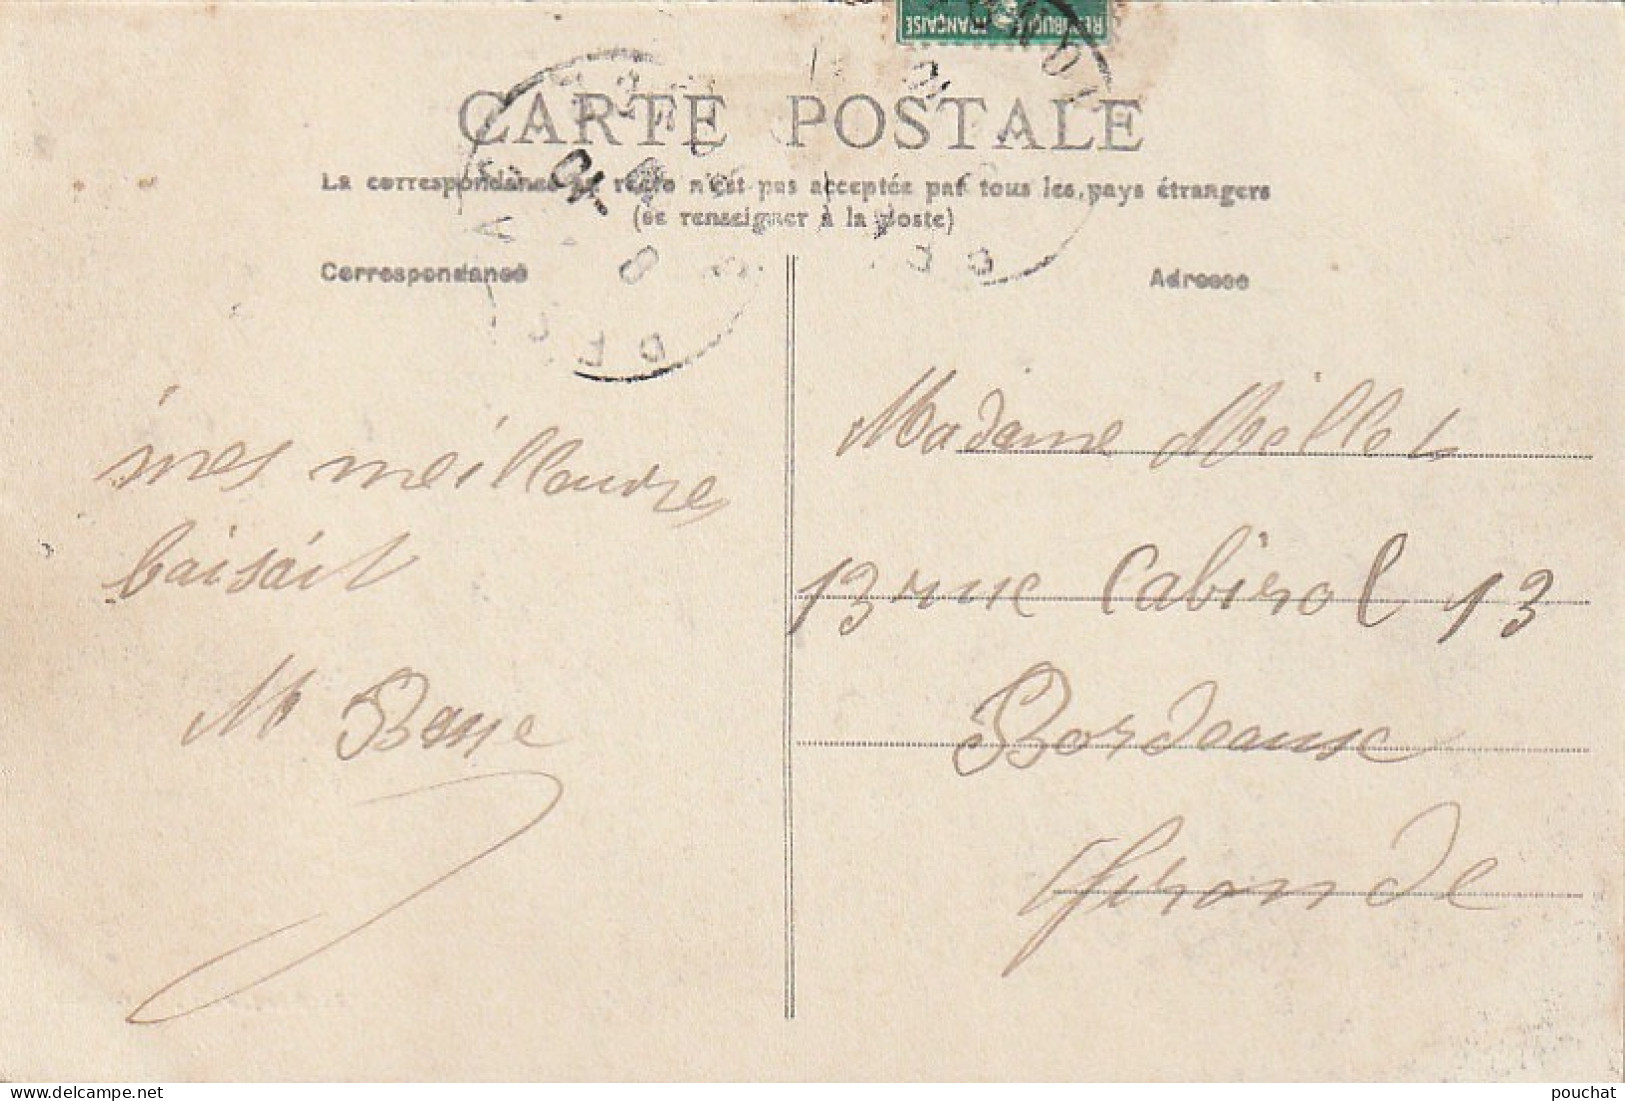 REPUBLIQUE FRANÇAISE
CARTE POSTALE
La correspondance au recto n'est pas acceptée par tous les pays étrangers
(se renseigner à la poste)
Correspondance
Adresse
mes meilleures
baisait
M Basse
Madame Millet
13 rue Cabirol 13
Bordeaux
Gironde
pouchat